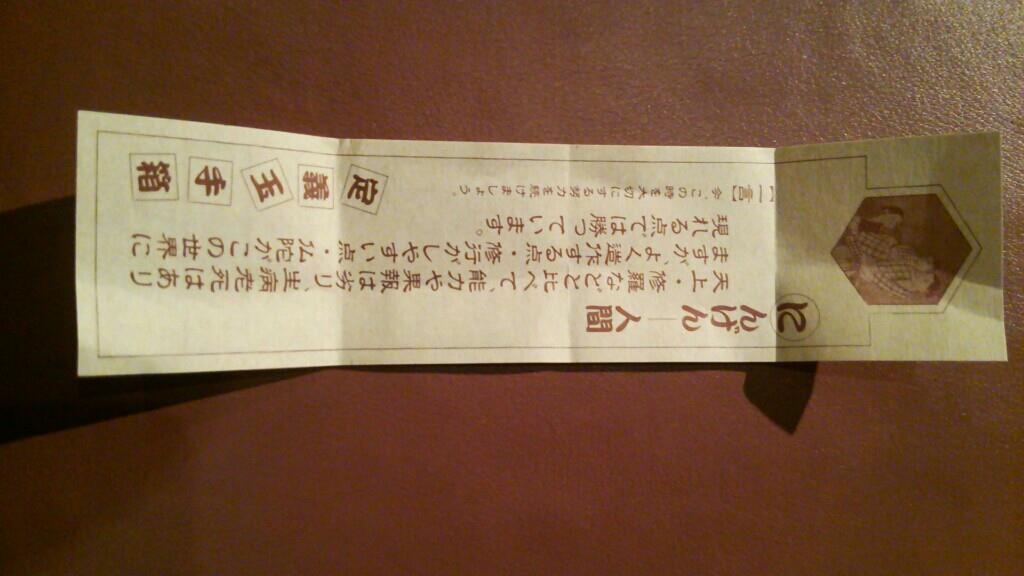 にんげん―人間
天上・修羅などと比べて、能力や果報は劣り、生病老死はあり
ますが、よく造作する点・修行がしやすい点・仏陀がこの世界に
現れる点では勝っています。
【一言】今、この時を大切にする努力を続けましょう。
定義玉手箱